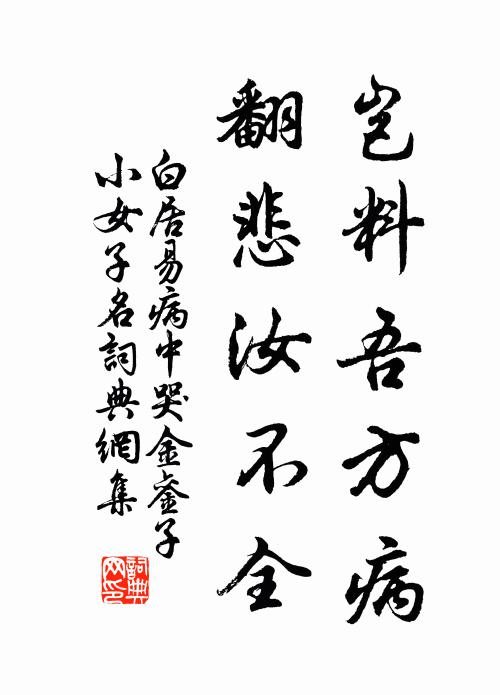 豈料吾方病
翻悲汝不全
白居易病中哭金鑾子
小女子名詞典網集
詞典
网印